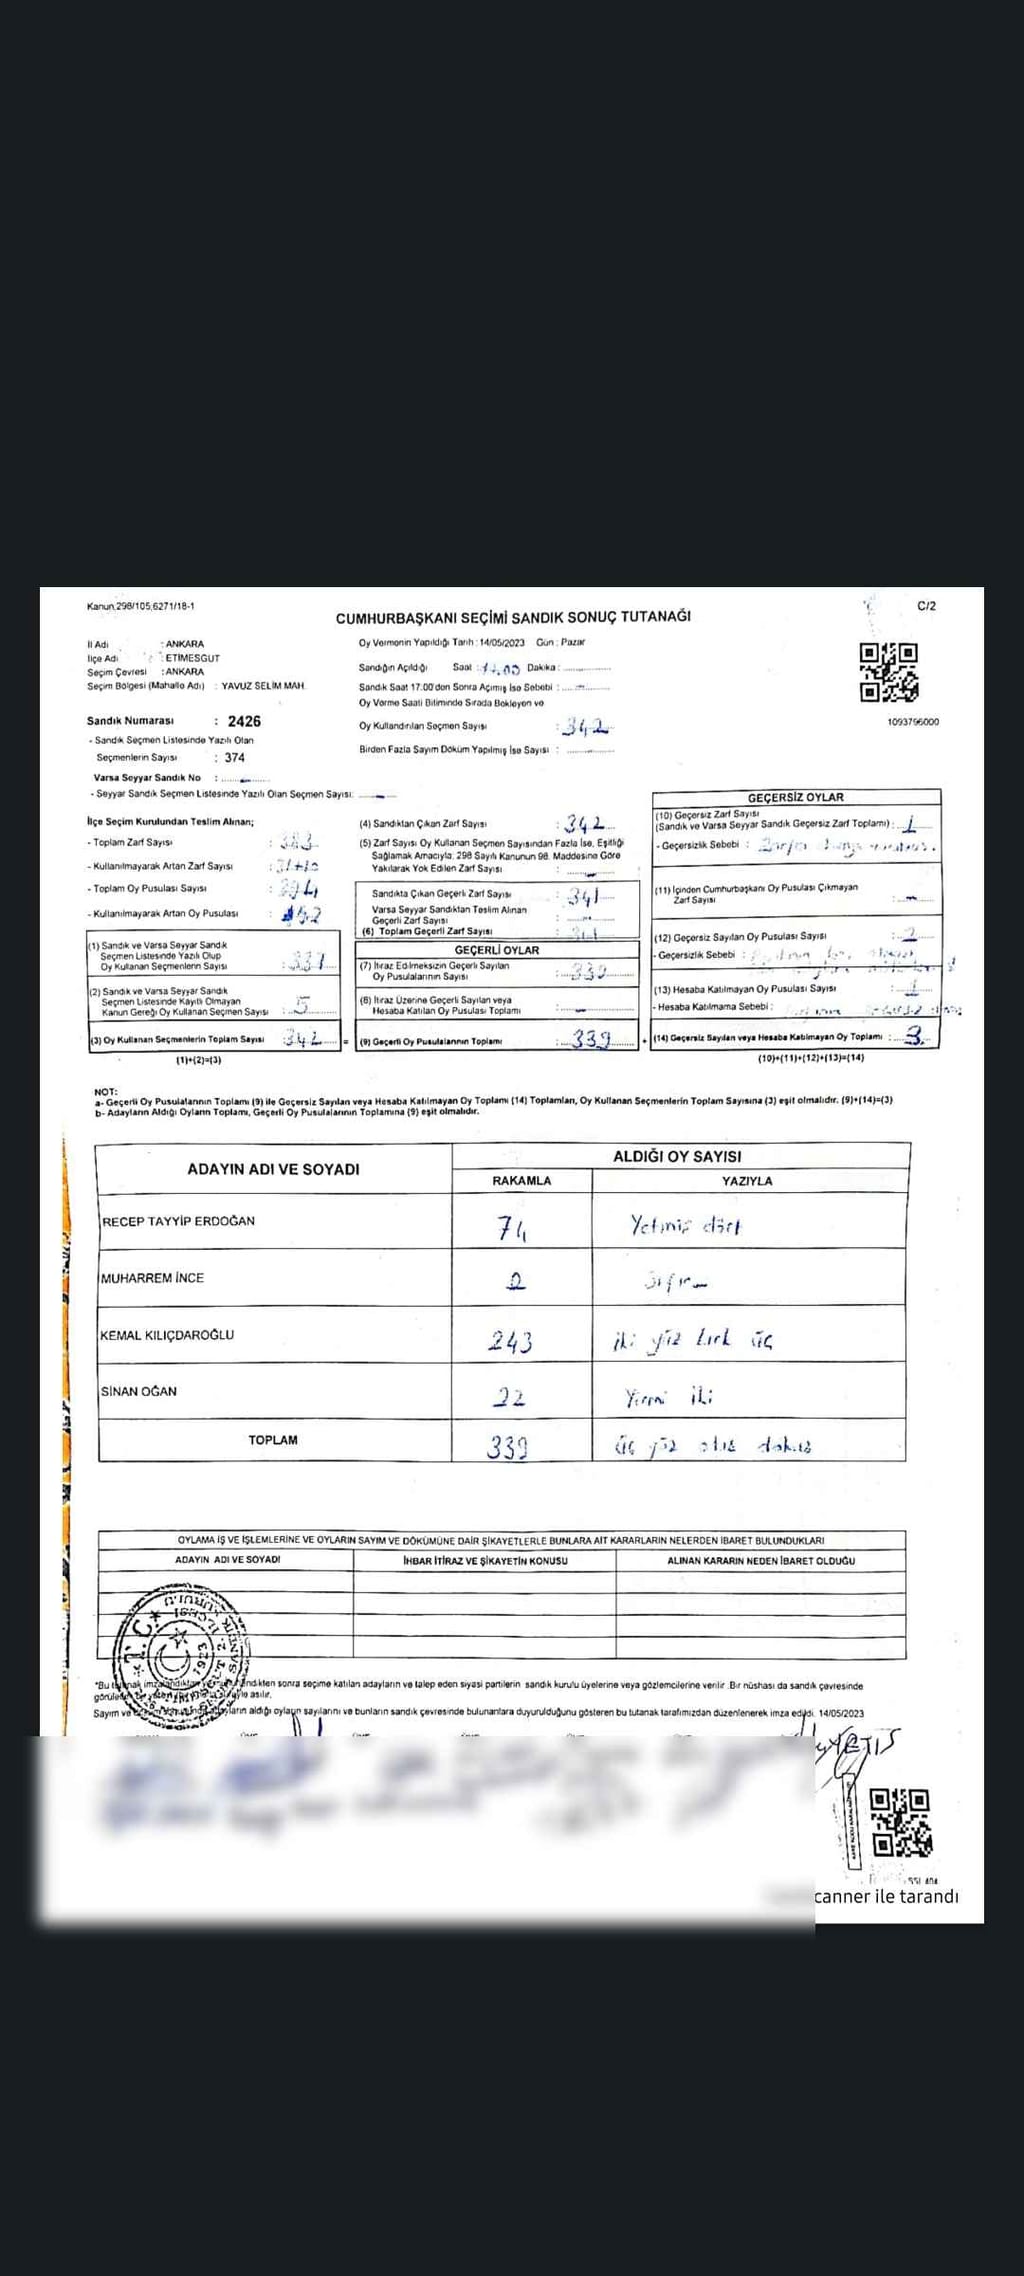 Kanun,298/105,6271/18-1
C/2
CUMHURBAŞKANI SEÇİMİ SANDIK SONUÇ TUTANAĞI
İl Adı : ANKARA
İlçe Adı : ETİMESGUT
Seçim Çevresi : ANKARA
Seçim Bölgesi (Mahalle Adı) : YAVUZ SELİM MAH.
Sandık Numarası : 2426
- Sandık Seçmen Listesinde Yazılı Olan
Seçmenlerin Sayısı : 374
Varsa Seyyar Sandık No :
- Seyyar Sandık Seçmen Listesinde Yazılı Olan Seçmen Sayısı:
Oy Vermenin Yapıldığı Tarih : 14/05/2023 Gün : Pazar
Sandığın Açıldığı Saat : Dakika :
Sandık Saat 17:00'den Sonra Açımış İse Sebebi :
Oy Verme Saati Bitiminde Sırada Bekleyen ve
Oy Kullandırılan Seçmen Sayısı : 342
Birden Fazla Sayım Döküm Yapılmış İse Sayısı :
1093796000
İlçe Seçim Kurulundan Teslim Alınan;
- Toplam Zarf Sayısı : 383
- Kullanılmayarak Artan Zarf Sayısı :
- Toplam Oy Pusulası Sayısı :
- Kullanılmayarak Artan Oy Pusulası :
(1) Sandık ve Varsa Seyyar Sandık
Seçmen Listesinde Yazılı Olup
Oy Kullanan Seçmenlerin Sayısı : 337
(2) Sandık ve Varsa Seyyar Sandık
Seçmen Listesinde Kayıtlı Olmayan
Kanun Gereği Oy Kullanan Seçmen Sayısı : 5
(3) Oy Kullanan Seçmenlerin Toplam Sayısı : 342 =
(1)+(2)=(3)
(4) Sandıktan Çıkan Zarf Sayısı : 342
(5) Zarf Sayısı Oy Kullanan Seçmen Sayısından Fazla İse, Eşitliği
Sağlamak Amacıyla; 298 Sayılı Kanunun 98. Maddesine Göre
Yakılarak Yok Edilen Zarf Sayısı :
Sandıkta Çıkan Geçerli Zarf Sayısı : 341
Varsa Seyyar Sandıktan Teslim Alınan
Geçerli Zarf Sayısı :
(6) Toplam Geçerli Zarf Sayısı : 341
GEÇERLİ OYLAR
(7) İtiraz Edilmeksizin Geçerli Sayılan
Oy Pusulalarının Sayısı : 339
(8) İtiraz Üzerine Geçerli Sayılan veya
Hesaba Katılan Oy Pusulası Toplamı :
(9) Geçerli Oy Pusulalarının Toplamı : 339 +
GEÇERSİZ OYLAR
(10) Geçersiz Zarf Sayısı
(Sandık ve Varsa Seyyar Sandık Geçersiz Zarf Toplamı) : 1
- Geçersizlik Sebebi :
(11) İçinden Cumhurbaşkanı Oy Pusulası Çıkmayan
Zarf Sayısı :
(12) Geçersiz Sayılan Oy Pusulası Sayısı : 2
- Geçersizlik Sebebi :
(13) Hesaba Katılmayan Oy Pusulası Sayısı : 1
- Hesaba Katılmama Sebebi :
(14) Geçersiz Sayılan veya Hesaba Katılmayan Oy Toplamı : 3
(10)+(11)+(12)+(13)=(14)
NOT:
a- Geçerli Oy Pusulalarının Toplamı (9) ile Geçersiz Sayılan veya Hesaba Katılmayan Oy Toplamı (14) Toplamları, Oy Kullanan Seçmenlerin Toplam Sayısına (3) eşit olmalıdır. (9)+(14)=(3)
b- Adayların Aldığı Oyların Toplamı, Geçerli Oy Pusulalarının Toplamına (9) eşit olmalıdır.
ADAYIN ADI VE SOYADI
ALDIĞI OY SAYISI
RAKAMLA YAZIYLA
RECEP TAYYİP ERDOĞAN 74 Yetmiş dört
MUHARREM İNCE 0 Sıfır
KEMAL KILIÇDAROĞLU 243 iki yüz kırk üç
SİNAN OĞAN 22 Yirmi iki
TOPLAM 339 üç yüz otuz dokuz
OYLAMA İŞ VE İŞLEMLERİNE VE OYLARIN SAYIM VE DÖKÜMÜNE DAİR ŞİKAYETLERLE BUNLARA AİT KARARLARIN NELERDEN İBARET BULUNDUKLARI
ADAYIN ADI VE SOYADI İHBAR İTİRAZ VE ŞİKAYETİN KONUSU ALINAN KARARIN NEDEN İBARET OLDUĞU
T.C.
sonra seçime katılan adayların ve talep eden siyasi partilerin sandık kurulu üyelerine veya gözlemcilerine verilir. Bir nüshası da sandık çevresinde
asılır.
Sayım ve aldığı oyların sayılarını ve bunların sandık çevresinde bulunanlara duyurulduğunu gösteren bu tutanak tarafımızdan düzenlenerek imza edildi. 14/05/2023
canner ile tarandı